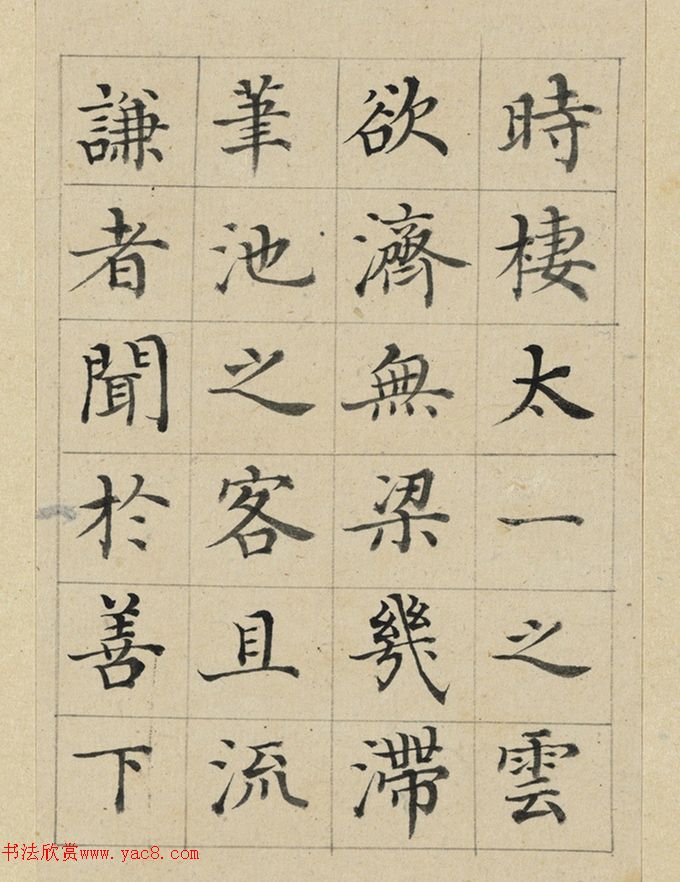 時棲太一之雲
欲濟無梁幾滯
筆池之客且流
謙者聞於善下
书法欣赏www.yac8.com